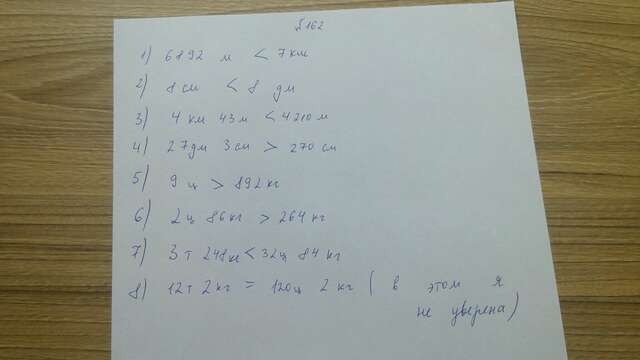 §162
1) 6892 м < 7 км
2) 8 см < 8 дм
3) 4 км 43 м < 4210 м
4) 27 дм 3 см > 270 см
5) 9 ц > 892 кг
6) 2 ц 86 кг > 264 кг
7) 3 т 248 кг < 32 ц 84 кг
8) 12 т 2 кг = 120 ц 2 кг ( в этом я
не уверена )